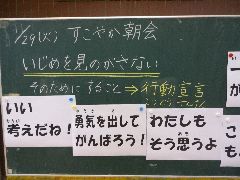 1/29(火) すこやか朝会
いじめを見のがさない
そのために すること → 行動宣言
こうどうせんげん
いい
考えだね!
勇気を出して
がんばろう!
わたしも
そう思うよ